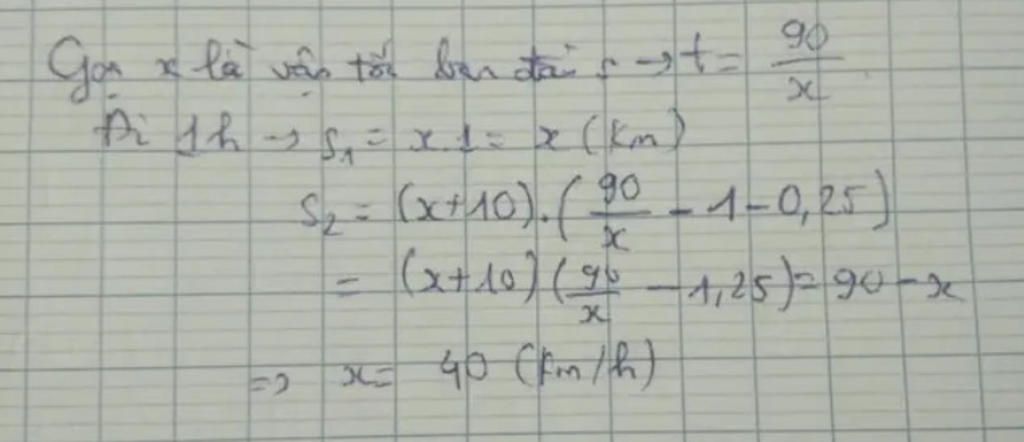 Gọi x là vận tốc ban đầu → t = 90/x
Đi 1h → S₁ = x.1 = x (km)
S₂ = (x+10).(90/x - 1 - 0,25)
= (x+10)(90/x - 1,25) = 90 - x
=> x = 40 (km/h)